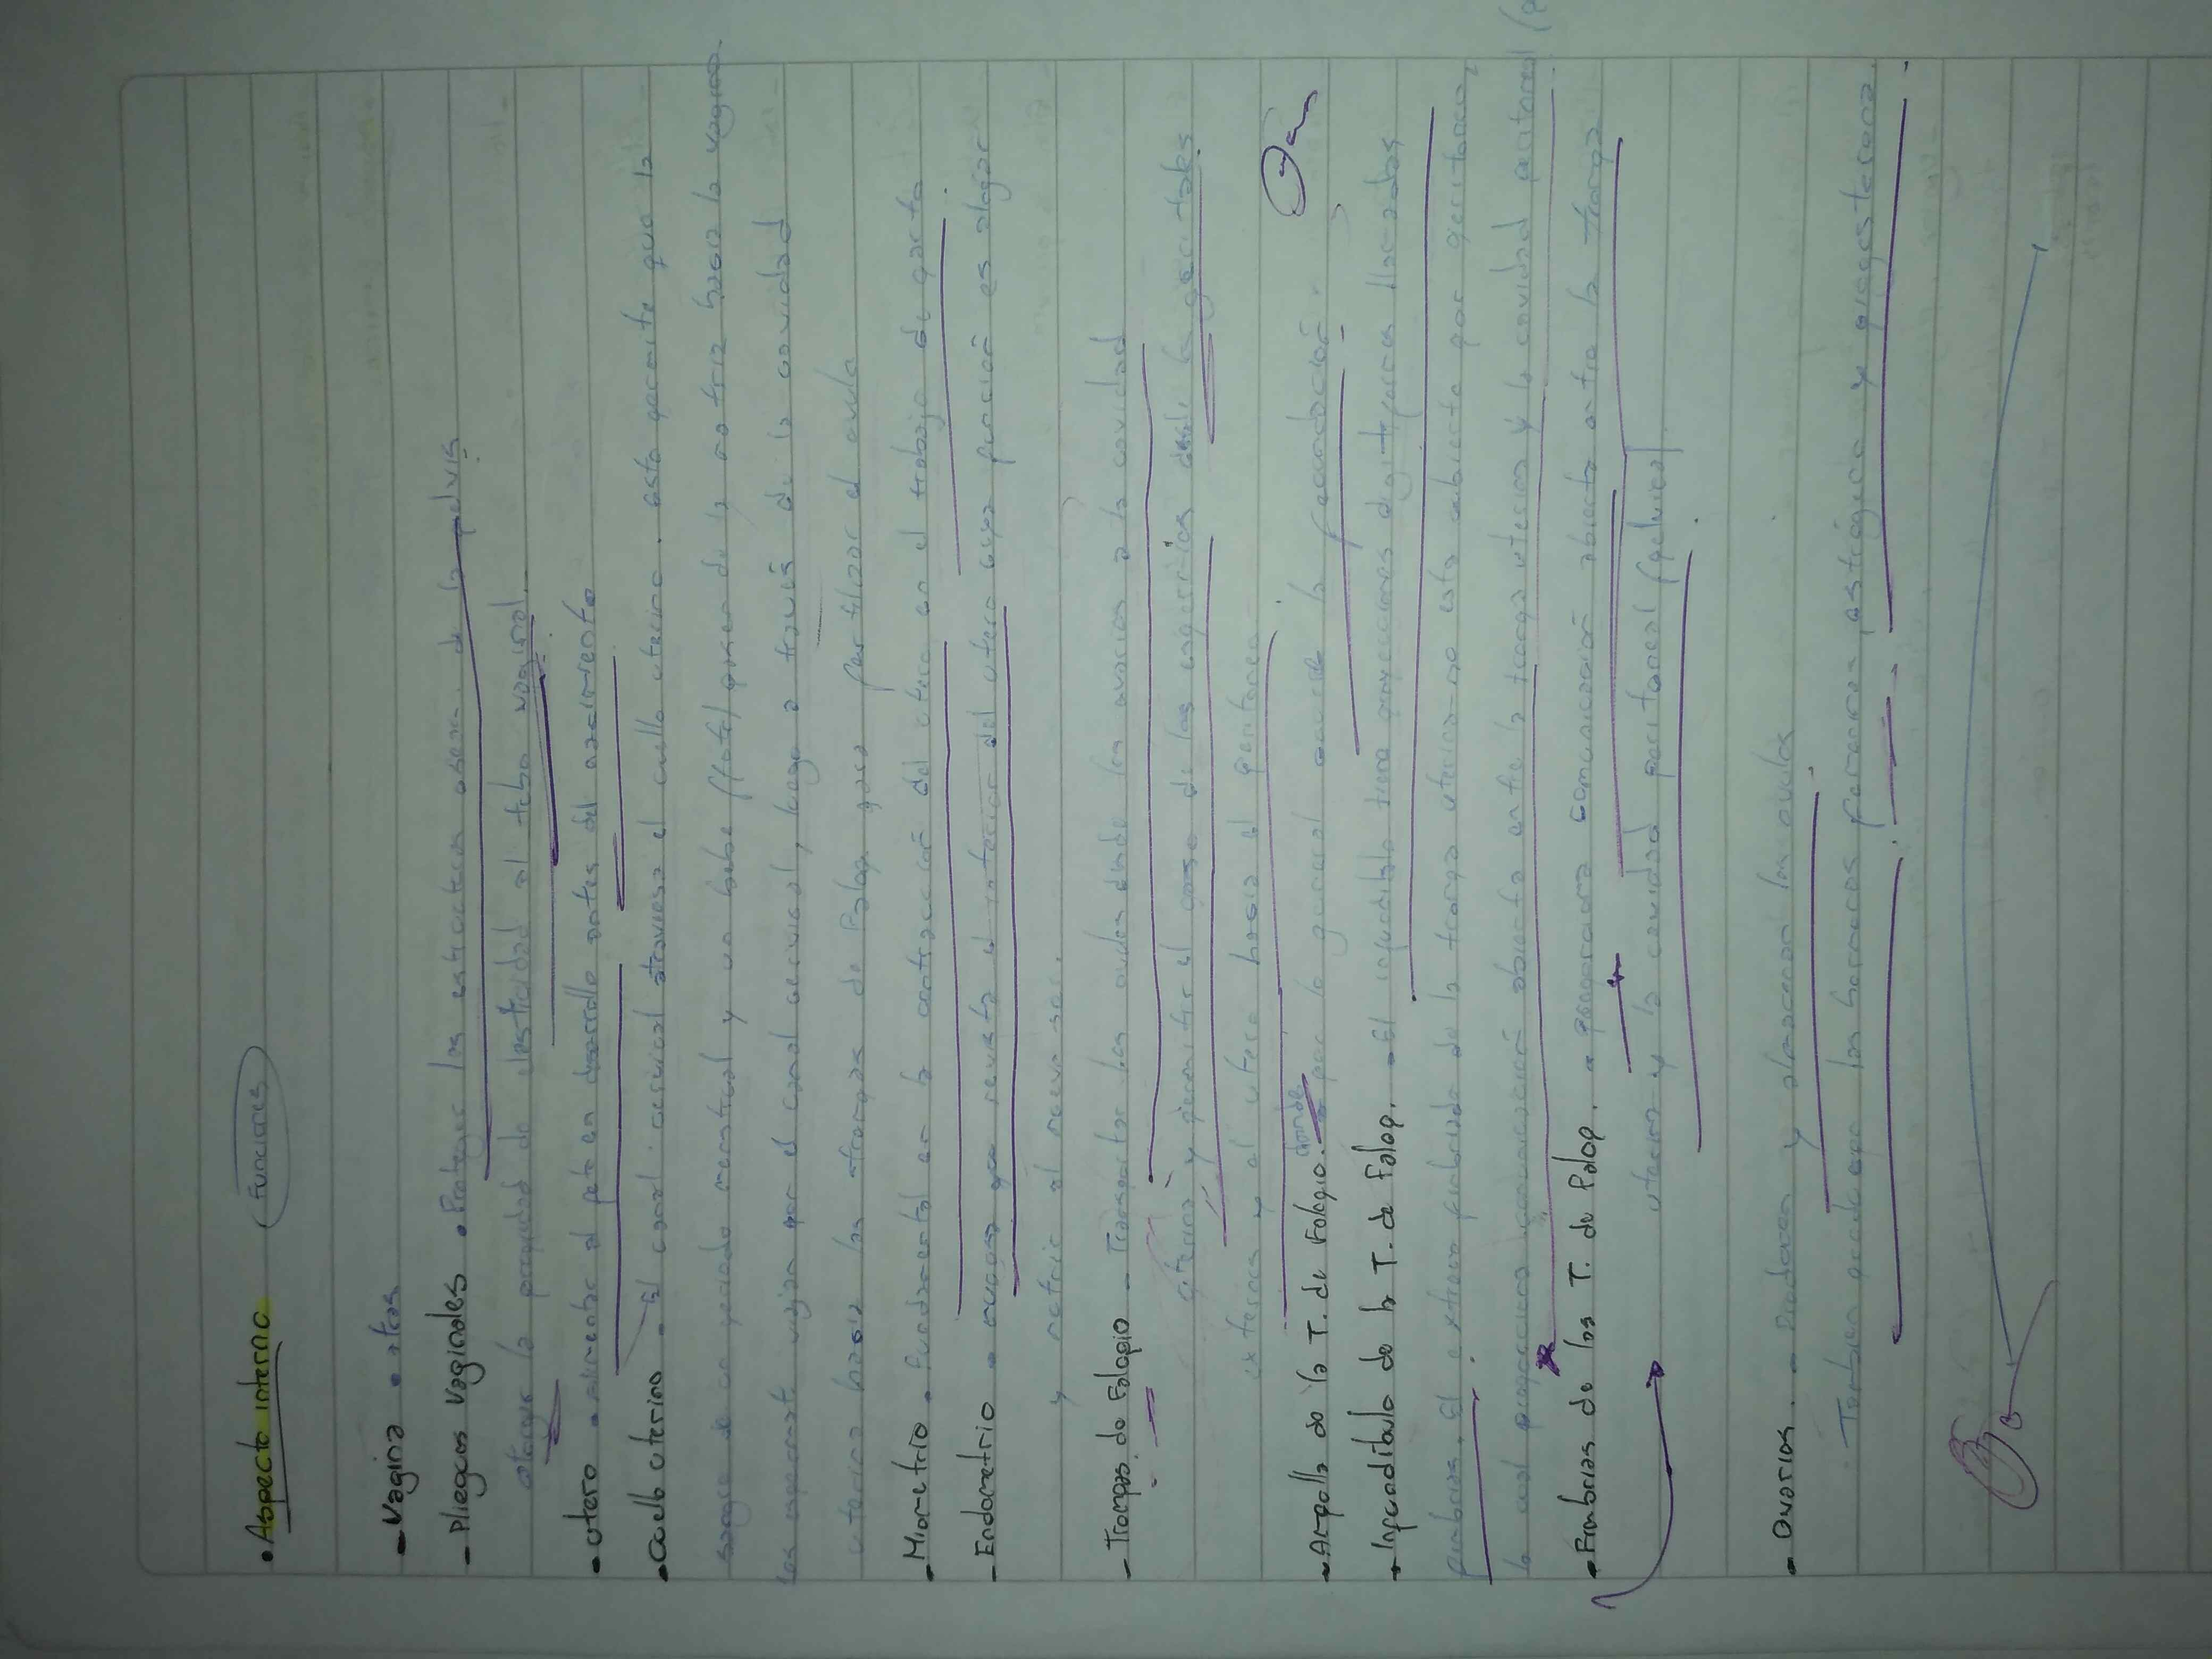 • Aspecto interno (Funciones)
- Vagina • otras
- Pliegues vaginales • Proteger las estructuras de la pelvis
otorga la propiedad de elasticidad al tubo vaginal.
• utero • alimentar al feto en desarrollo antes del nacimiento
• cuello uterino - El canal cervical atraviesa el cuello uterino. esto permite que la
sangre de un periodo menstrual y un bebe (feto) pasen de la matriz hacia la vagina.
los espermat viajan por el canal cervical, luego a través de la cavidad
uterina hacia las trompas de Falop. para fertilizar el ovulo
- Miometrio • Fundamental en la contracción del utero en el trabajo de parto.
- Endometrio • mucosa que revista el interior del utero cuya función es alojar
y nutrir al nuevo ser.
- Trompas de Falopio - Transportar los ovulos desde los ovarios a la cavidad
uterina y permitir el paso de los espermios desde los genitales
externos y al utero hacia el peritoneo
- Ampolla de la T. de Falopio. donde por lo general ocurre la fecundación.
- Infundibulo de la T. de Falop. • El infundibulo tiene proyecciones digitiformes llamadas
fimbrias. El extremo fimbriado de la trompa uterina no esta cubierto por peritoneo,
lo cual proporciona comunicación abierta entre la trompa uterina y la cavidad peritoneal
• Fimbrias de las T. de Falop. • proporciona comunicación abierta entre la trompa
uterina y la cavidad peritoneal (pelvica)
- Ovarios. - Producen y almacenan los ovulos
También producen las hormonas femeninas estrógeno y progesterona.